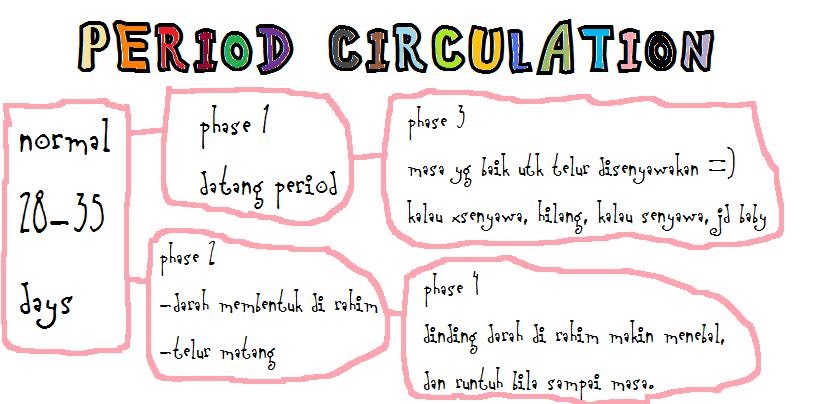 PERIOD CIRCULATION
normal
28-35
days
phase 1
datang period
phase 2
-darah membentuk di rahim
-telur matang
phase 3
masa yg baik utk telur disenyawakan =)
kalau xsenyawa, hilang, kalau senyawa, jd baby
phase 4
dinding darah di rahim makin menebal,
dan runtuh bila sampai masa.